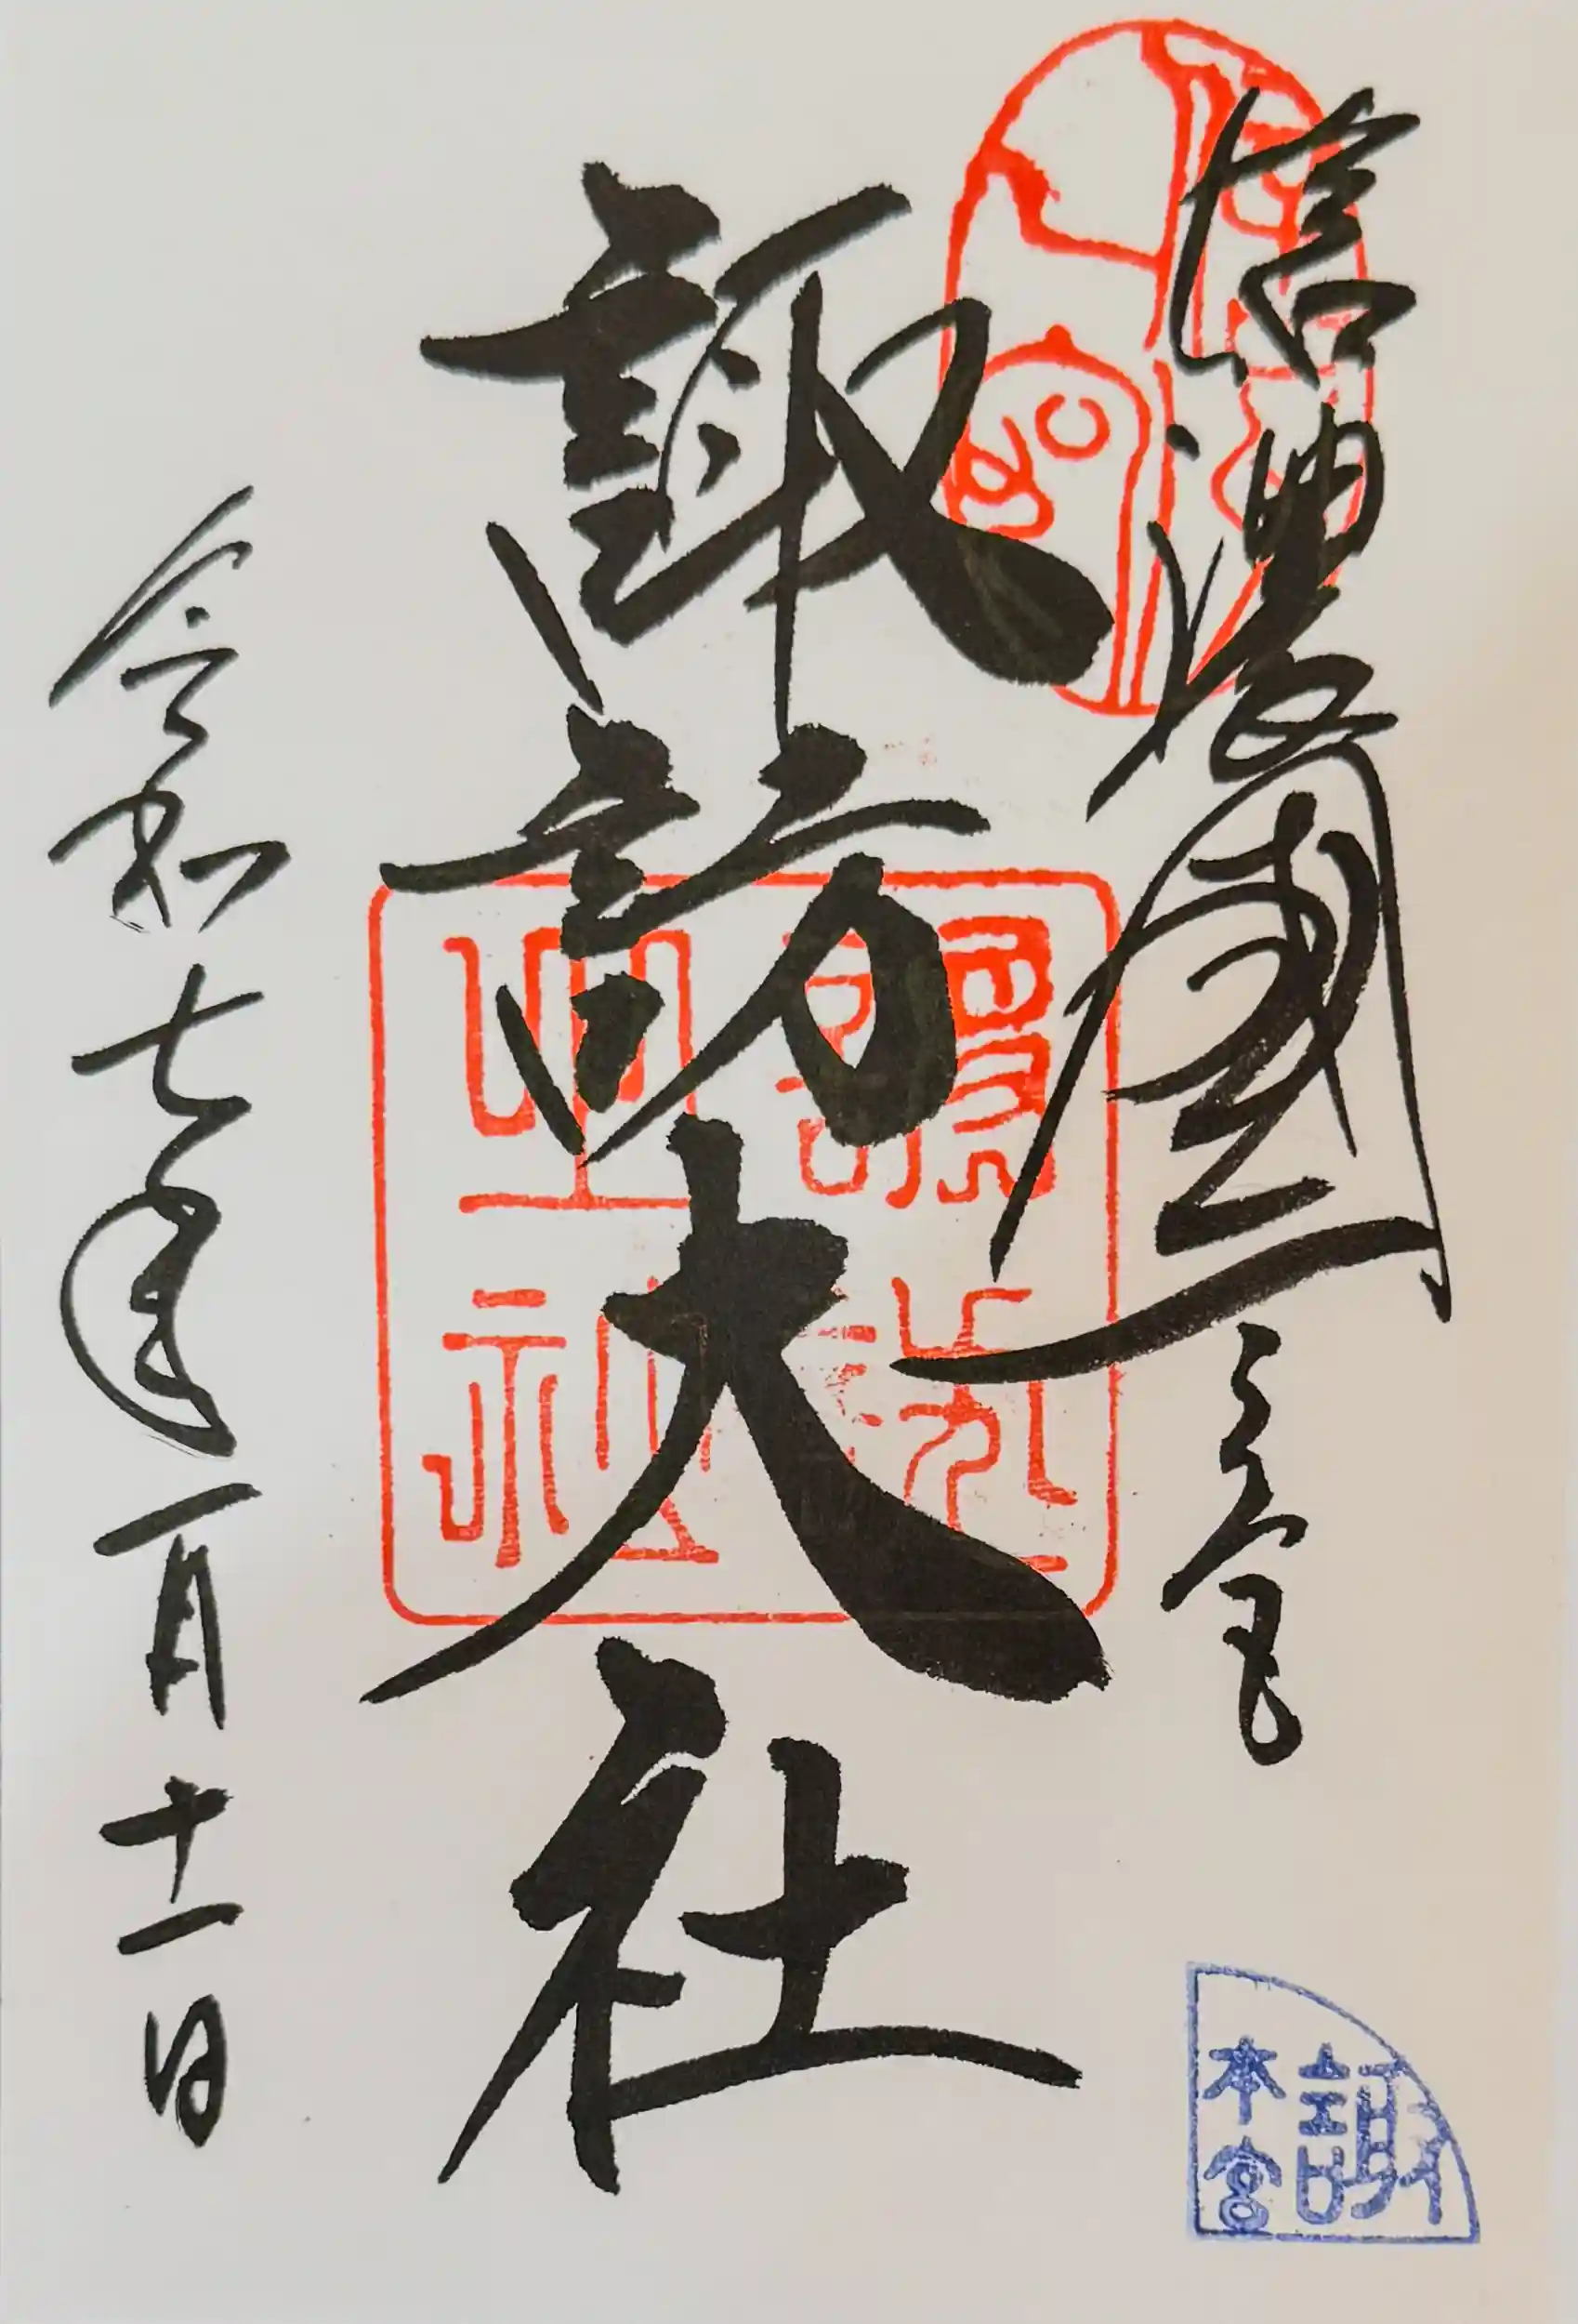 信濃國一之宮
諏訪大社
令和七年一月十一日
諏
本宮